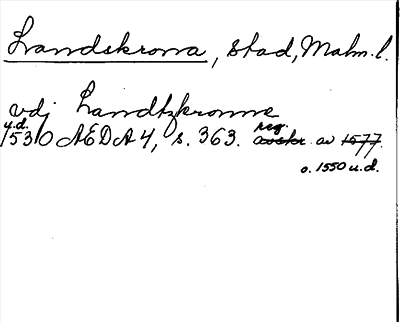 Landskrona, stad, Malm.l.
vdj Landtzkronne
u.d.
1530 AEDA 4, s. 363. avskr. av 1577.
reg.
o. 1550 u.d.